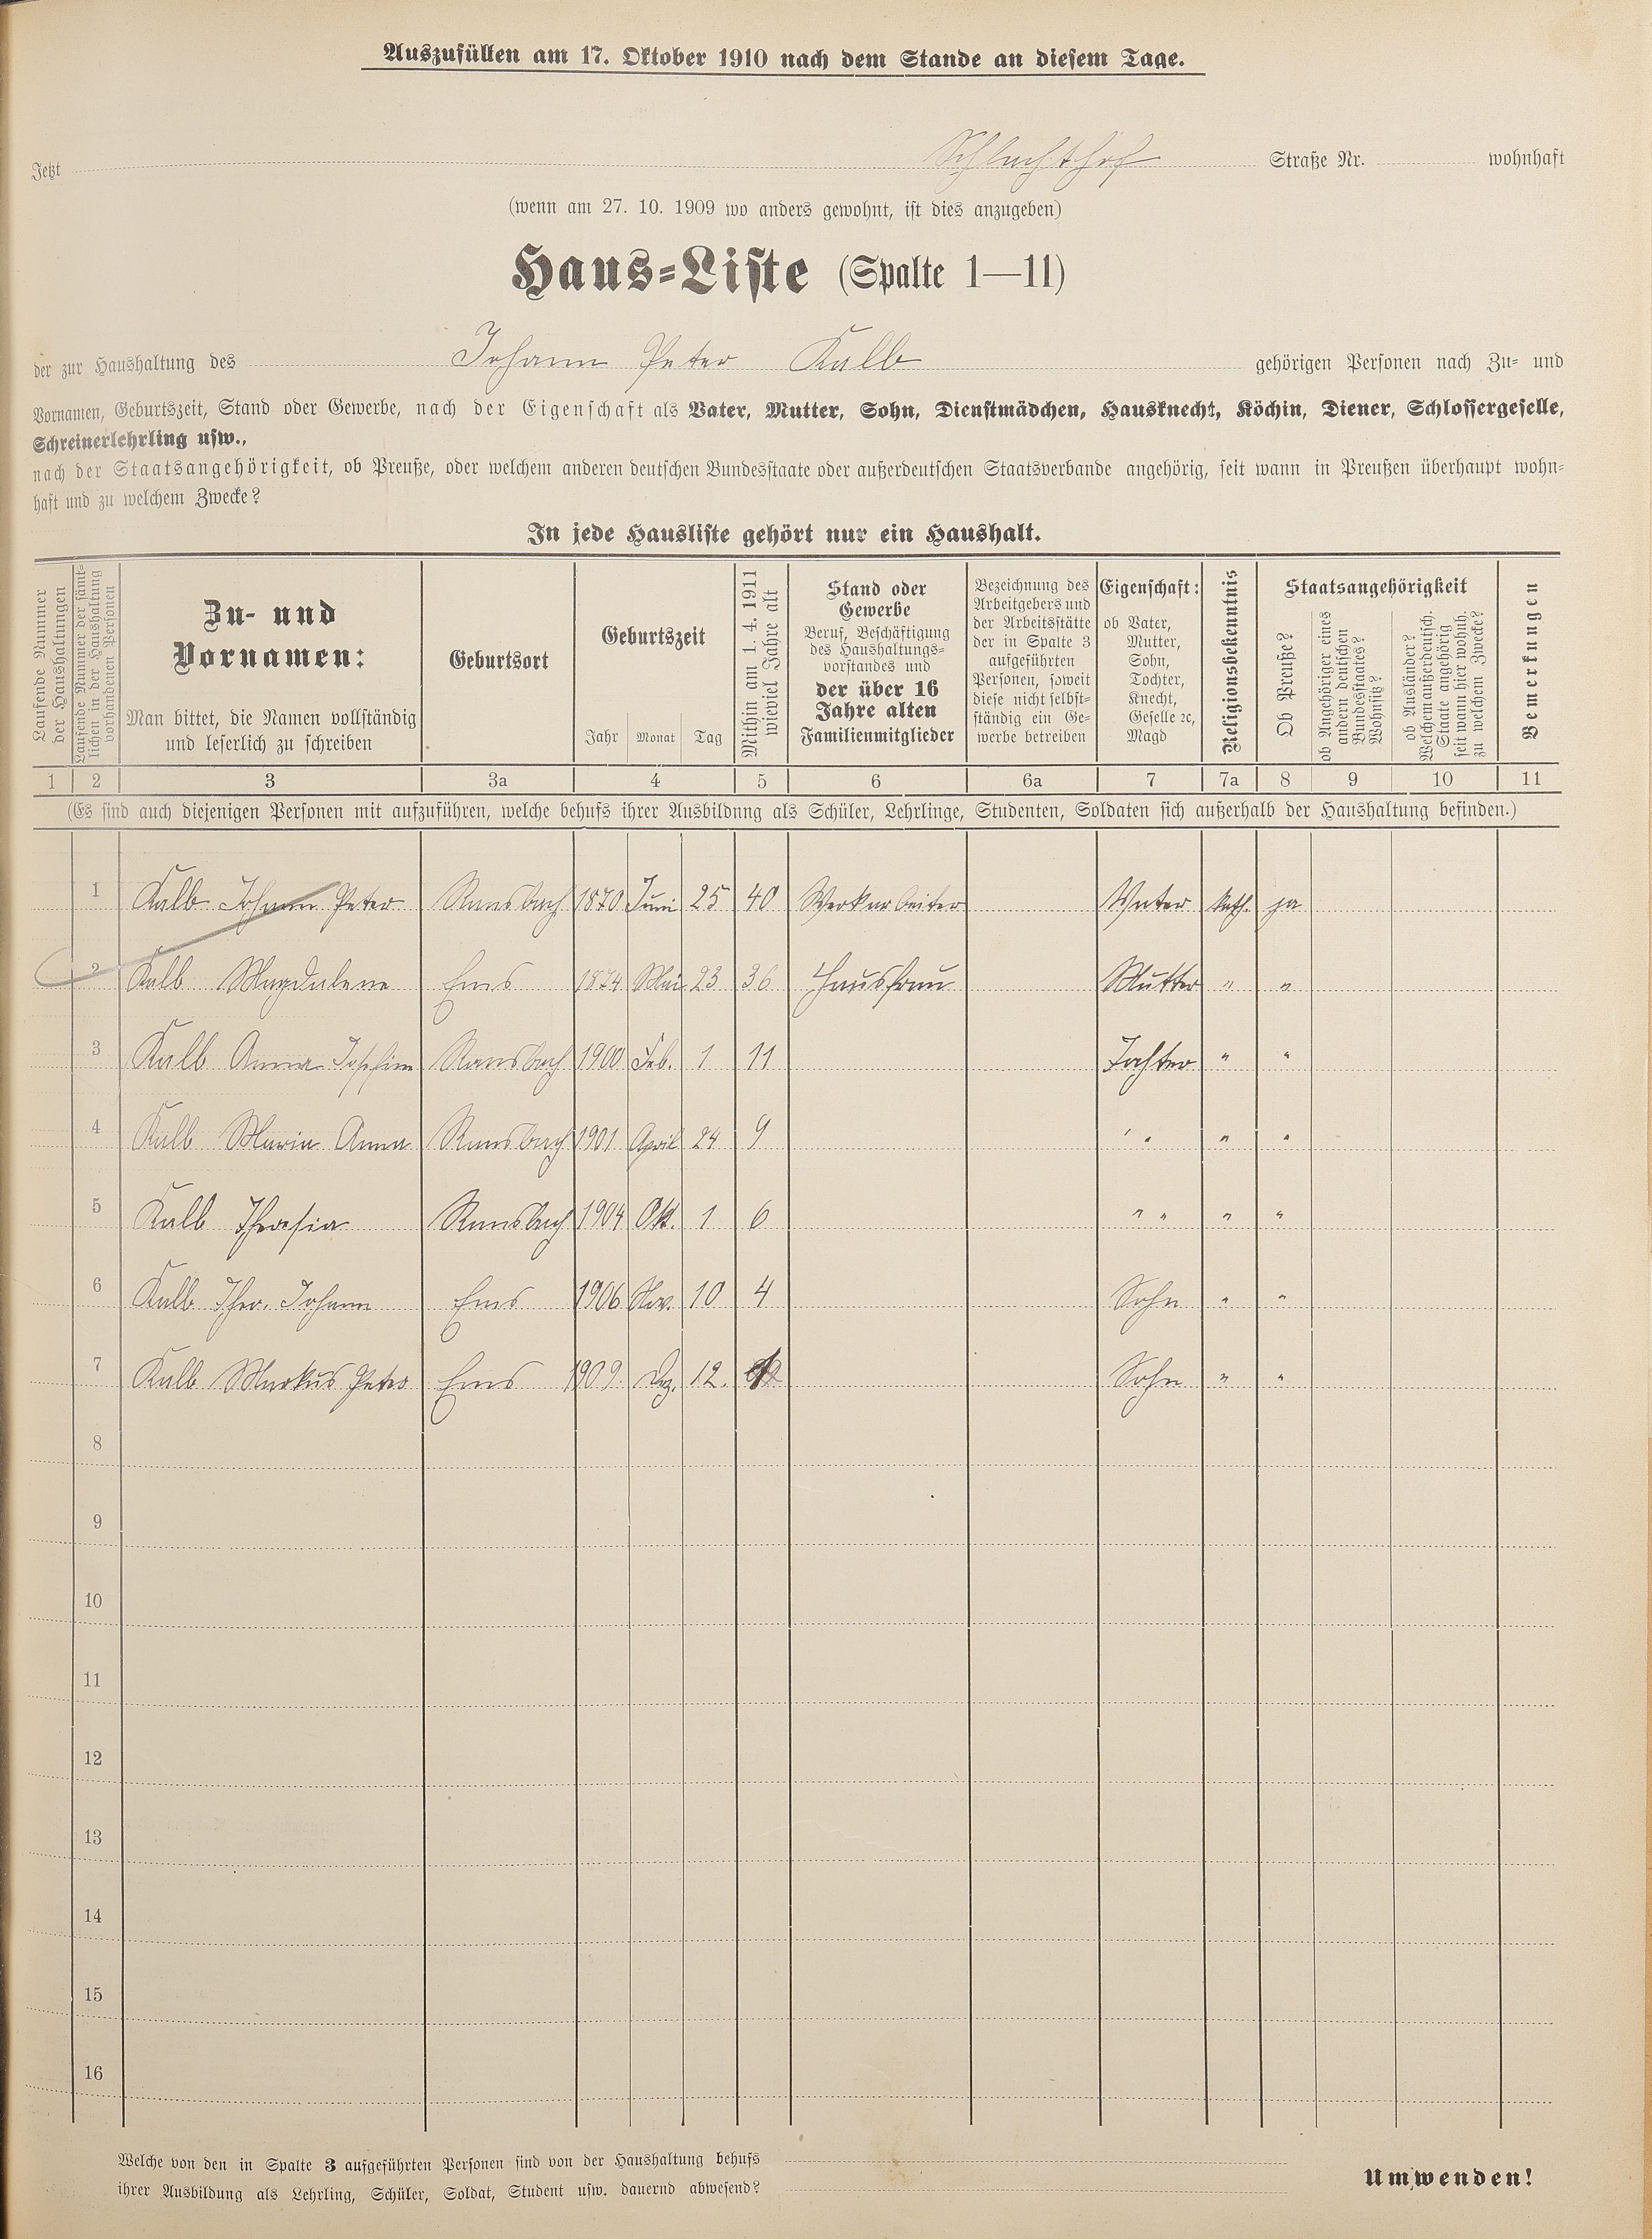 Auszufüllen am 17. Oktober 1910 nach dem Stande an diesem Tage.
Jetzt Schlachthof Straße Nr. wohnhaft
(wenn am 27. 10. 1909 wo anders gewohnt, ist dies anzugeben)
Haus-Liste (Spalte 1—11)
der zur Haushaltung des Johann Peter Kalb gehörigen Personen nach Zu- und
Vornamen, Geburtszeit, Stand oder Gewerbe, nach der Eigenschaft als Vater, Mutter, Sohn, Dienstmädchen, Hausknecht, Köchin, Diener, Schlossergeselle,
Schreinerlehrling usw.,
nach der Staatsangehörigkeit, ob Preuße, oder welchem anderen deutschen Bundesstaate oder außerdeutschen Staatsverbande angehörig, seit wann in Preußen überhaupt wohn-
haft und zu welchem Zwecke?
In jede Hausliste gehört nur ein Haushalt.
Laufende Nummer
der Haushaltungen
Laufende Nummer der sämt-
lichen in der Haushaltung
vorhandenen Personen
Zu- und
Vornamen:
Man bittet, die Namen vollständig
und leserlich zu schreiben
Geburtsort
Geburtszeit
Jahr Monat Tag
Mithin am 1. 4. 1911
wieviel Jahre alt
Stand oder
Gewerbe
Beruf, Beschäftigung
des Haushaltungs-
vorstandes und
der über 16
Jahre alten
Familienmitglieder
Bezeichnung des
Arbeitgebers und
der Arbeitsstätte
der in Spalte 3
aufgeführten
Personen, soweit
diese nicht selbst-
ständig ein Ge-
werbe betreiben
Eigenschaft:
ob Vater,
Mutter,
Sohn,
Tochter,
Knecht,
Geselle ꝛc,
Magd
Religionsbekenntnis
Staatsangehörigkeit
Ob Preuße?
ob Angehöriger eines
andern deutschen
Bundesstaates?
Wohnsitz?
ob Ausländer?
Welchem außerdeutsch.
Staate angehörig
seit wann hier wohnh.
zu welchem Zwecke?
Bemerkungen
1 2 3 3a 4 5 6 6a 7 7a 8 9 10 11
(Es sind auch diejenigen Personen mit aufzuführen, welche behufs ihrer Ausbildung als Schüler, Lehrlinge, Studenten, Soldaten sich außerhalb der Haushaltung befinden.)
1 Kalb Johann Peter Ransbach 1870 Juni 25 40 Werkarbeiter Vater kath. ja
2 Kalb Magdalena Ems 1874 Mai 23 36 Hausfrau Mutter " "
3 Kalb Anna Josefine Ransbach 1900 Feb. 1 11 Tochter " "
4 Kalb Maria Anna Ransbach 1901 April 24 9 " " " "
5 Kalb Theresia Ransbach 1904 Okt. 1 6 " " " "
6 Kalb Theo. Johann Ems 1906 Nov. 10 4 Sohn " "
7 Kalb Markus Peter Ems 1909. Dez. 12. 1 Sohn " "
8
9
10
11
12
13
14
15
16
Welche von den in Spalte 3 aufgeführten Personen sind von der Haushaltung behufs
ihrer Ausbildung als Lehrling, Schüler, Soldat, Student usw. dauernd abwesend?
Umwenden!